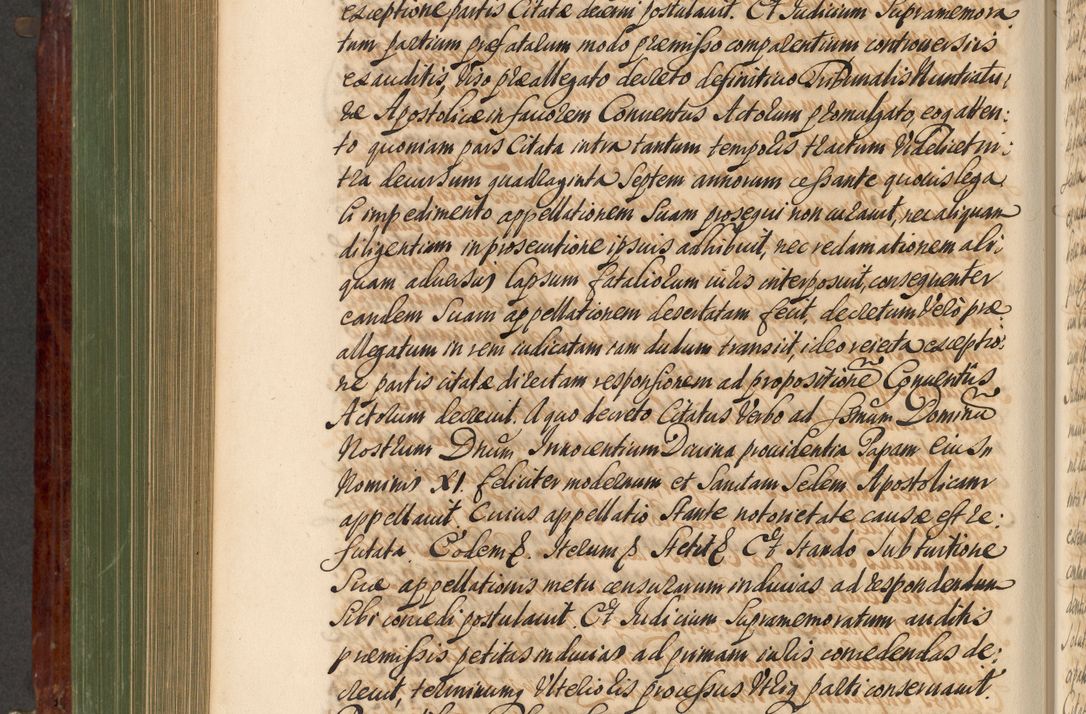 exceptione partis Citatæ decerni postulavit. Et Iudicium Supramemora
tum partium præfatarum modo præmisso comparentium controversiis
exauditis, viso præallegato decreto definitivo Tribunalis Nuntiatu:
ræ Apostolicæ in favorem Conventus Actorum promulgato, eoq atten:
to quoniam pars Citata intra tantum temporis tractum Videlicet in:
tra decursum quadraginta Septem annorum cessante quovis lega
li impedimento appellationem Suam prosequi non curavit, nec aliquam
diligentiam in prosecutione ipsius adhibuit, nec reclamationem ali:
quam adversus lapsum fatalium iuris interposuit, consequenter
eandem Suam appellationem desertatam fecit, decretum Verò præ
allegatum in rem iudicatam iam dudum transiit, ideo reiecta exceptio:
ne partis citatæ directam responsionem ad propositionē Conventûs
Actorum decrevit. A quo decreto Citatus Verbo ad Ssmum Dominū
Nostrum Dnum Innocentium Divina providentia Papam Eius
Nominis XI. feliciter modernum et Sanctam Sedem Apostolicam
appellavit. Cuius appellatio Stante notorietate causæ est re:
futata. Eodem Iterum Stetit Et Stando Sub tuitione
Suæ appellationis metu censurarum inducias ad respondendum
Sibi concedi postulavit. Et Iudicium Supramemoratum auditis
præmissis petitas inducias ad primam iuris concedendas de:
crevit, terminumq Ulterioris processus Utriq parti conservavit.